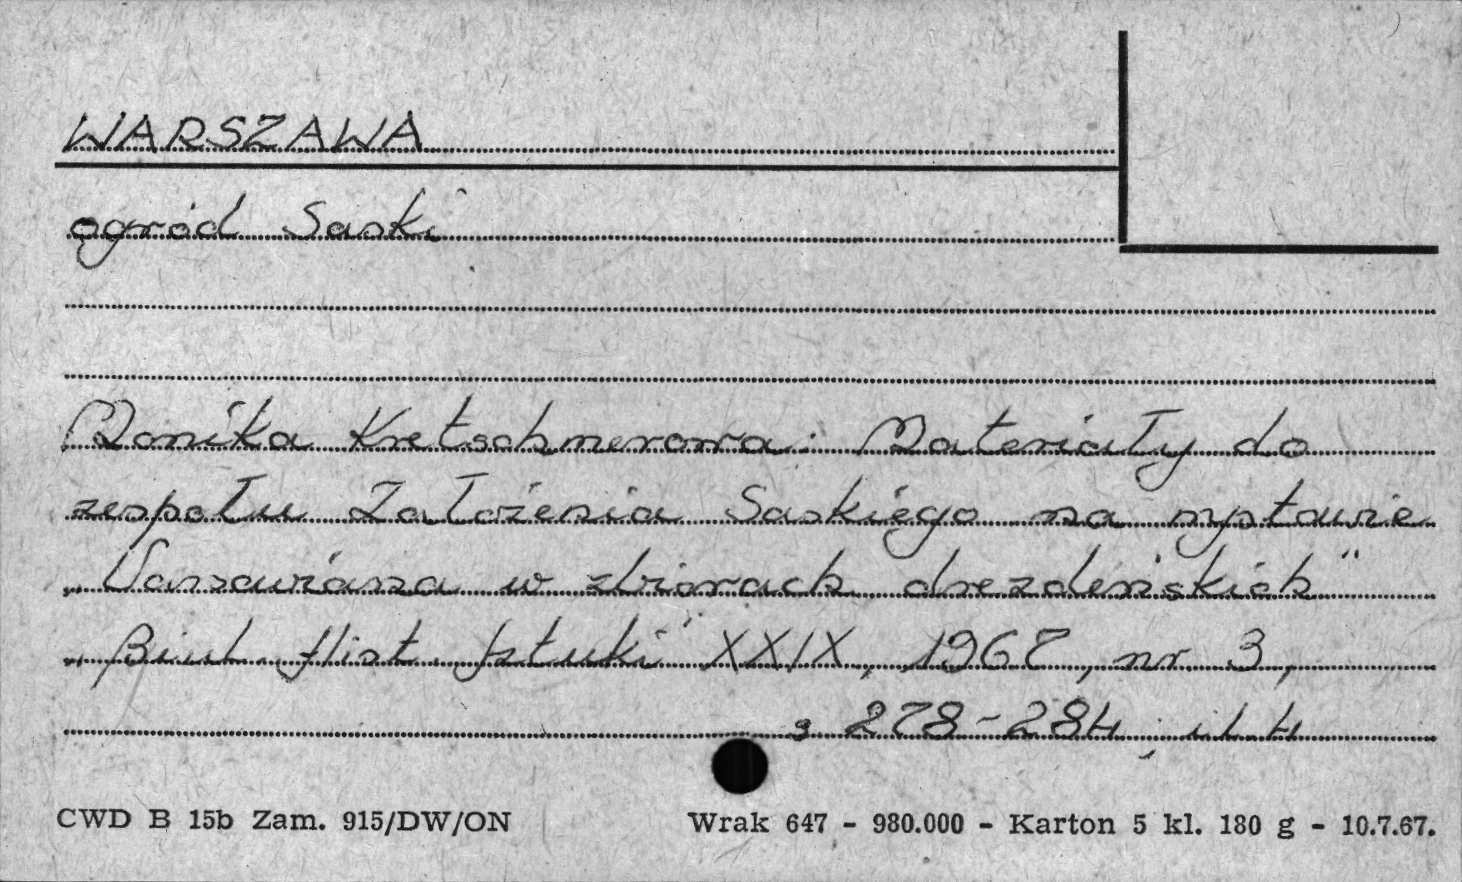 WARSZAWA
ogród Saski
Monika Kretschmerowa: Materiały do
zespołu Założenia Saskiego na wystawie
„Varsaviana w zbiorach drezdeńskich"
„Biul. Hist. Sztuki" XXIX, 1967, nr 3,
s 278-284, il. 4
CWD B 15b Zam. 915/DW/ON Wrak 647 - 980.000 - Karton 5 kl. 180 g - 10.7.67.